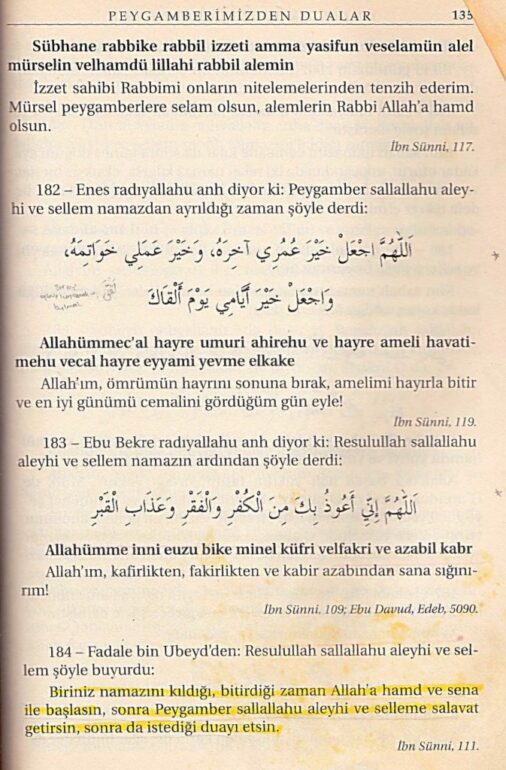 PEYGAMBERİMİZDEN DUALAR 135
Sübhane rabbike rabbil izzeti amma yasifun veselamün alel
mürselin velhamdü lillahi rabbil alemin
İzzet sahibi Rabbimi onların nitelemelerinden tenzih ederim.
Mürsel peygamberlere selam olsun, alemlerin Rabbi Allah'a hamd
olsun.
İbn Sünni, 117.
182 – Enes radıyallahu anh diyor ki: Peygamber sallallahu aley-
hi ve sellem namazdan ayrıldığı zaman şöyle derdi:
اَللّٰهُمَّ اجْعَلْ خَيْرَ عُمُرِي آخِرَهُ، وَخَيْرَ عَمَلِي خَوَاتِمَهُ،
وَاجْعَلْ خَيْرَ أَيَّامِي يَوْمَ أَلْقَاكَ
Allahümmec'al hayre umuri ahirehu ve hayre ameli havati-
mehu vecal hayre eyyami yevme elkake
Allah'ım, ömrümün hayrını sonuna bırak, amelimi hayırla bitir
ve en iyi günümü cemalini gördüğüm gün eyle!
İbn Sünni, 119.
183 – Ebu Bekre radıyallahu anh diyor ki: Resulullah sallallahu
aleyhi ve sellem namazın ardından şöyle derdi:
اَللّٰهُمَّ إِنِّي أَعُوذُ بِكَ مِنَ الْكُفْرِ وَالْفَقْرِ وَعَذَابِ الْقَبْرِ
Allahümme inni euzu bike minel küfri velfakri ve azabil kabr
Allah'ım, kafirlikten, fakirlikten ve kabir azabından sana sığını-
rım!
İbn Sünni, 109; Ebu Davud, Edeb, 5090.
184 – Fadale bin Ubeyd'den: Resulullah sallallahu aleyhi ve sel-
lem şöyle buyurdu:
Biriniz namazını kıldığı, bitirdiği zaman Allah'a hamd ve sena
ile başlasın, sonra Peygamber sallallahu aleyhi ve selleme salavat
getirsin, sonra da istediği duayı etsin.
İbn Sünni, 111.